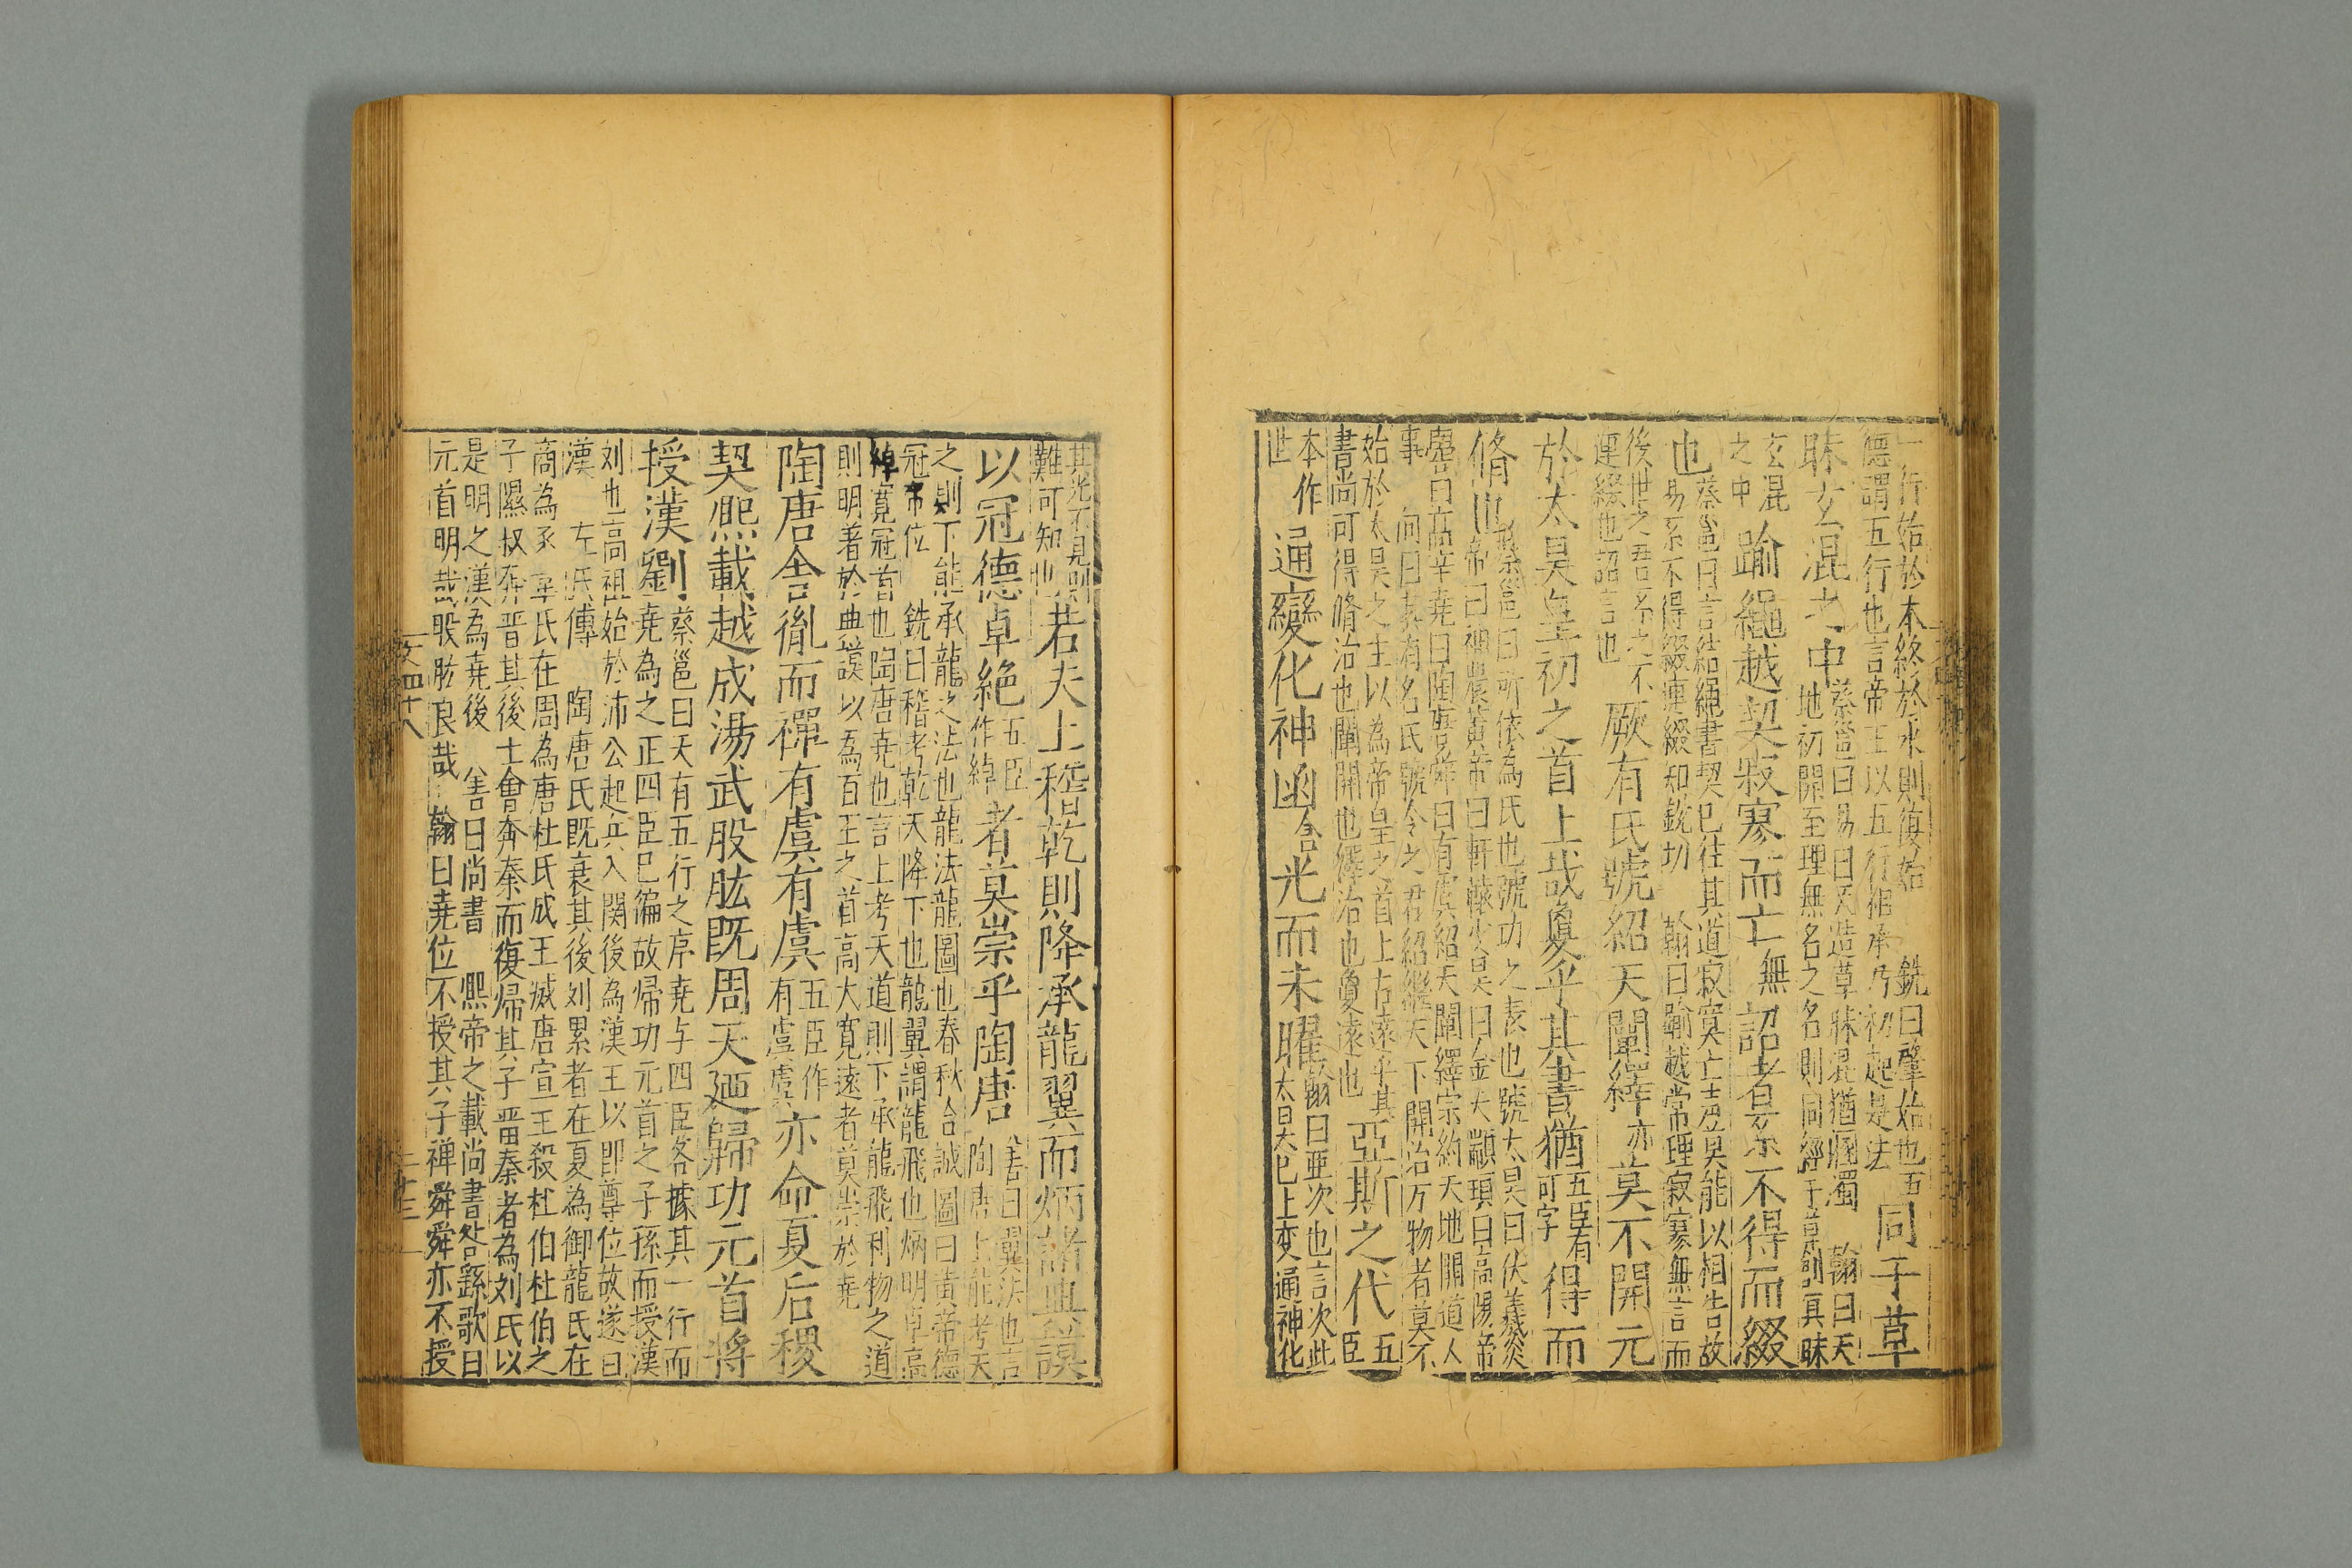 行始於本終於末則復始 銑曰肇始也五
德謂五行也言帝王以五行相承乃初起是法
同于草
昧玄混之中
蔡邕曰易曰天造草昧混猶溷濁 翰曰天
地初開至理無名之名則同經于草創冥昧
玄混
之中
踰繩越契寂寥而亡
無
詔者系不得而綴
也
蔡邕曰言結繩書契已往其道寂寞亡聲莫能以相告故
易系不得綴連綴知銑切 翰曰踰越常理寂寥無言而
後世之君系之不
連綴也詔言也
厥有氏號紹天闡繹
亦
莫不開元
於太昊皇初之首上哉夐乎其書猶
五臣有
可字
得而
脩也
蔡邕曰所依為氏也號功之表也號太昊曰伏羲炎
帝曰神農黃帝曰軒轅少昊曰金天顓頊曰高陽帝
嚳曰高辛堯曰陶唐舜曰有虞紹天闡繹宗約天地開道人
事 向曰其有名氏號令之君紹繼天下開治万物者莫不
始於太昊之主以為帝皇之首上古遠乎其
書尚可得脩治也闡開也繹治也夐遠也
亞斯之代
五
臣
本作
世
通變化神函
含
光而未曜
翰曰亜次也言次此
太昊已上変通神化
其光不見則
難可知也
若夫上稽乾則降承龍翼而炳諸典謨
以冠德卓絶
五臣
作綽
者莫崇乎陶唐
善曰翼法也言
陶唐上能考天
之則下能承龍之法也龍法龍圖也春秋合誠圖曰黃帝德
冠帝位 銑曰稽考乾天降下也龍翼謂龍飛也炳明卓高
綽寛冠首也陶唐堯也言上考天道則下承龍飛利物之道
則明著於典謨以為百王之首高大寛遠者莫崇於堯
陶唐舎胤而禪有虞有虞
五臣作
有虞虞
亦命夏后稷
契熈載越成湯武股肱既周天廼歸功元首將
授漢劉
蔡邕曰天有五行之序堯与四臣各據其一行而
堯為之正四臣已徧故帰功元首之子孫而授漢
刘也高祖始於沛公起兵入関後為漢王以即尊位故遂曰
漢 左氏傳 陶唐氏既衰其後刘累者在夏為御龍氏在
商為豕韋氏在周為唐杜氏成王滅唐宣王殺杜伯杜伯之
子隰叔奔晋其後士會奔秦而復帰其子畱秦者為刘氏以
是明之漢為堯後 善曰尚書 熈帝之載尚書咎繇歌曰
元首明哉股肱良哉 翰曰堯位不授其子禅舜舜亦不授
文四十八
二十三